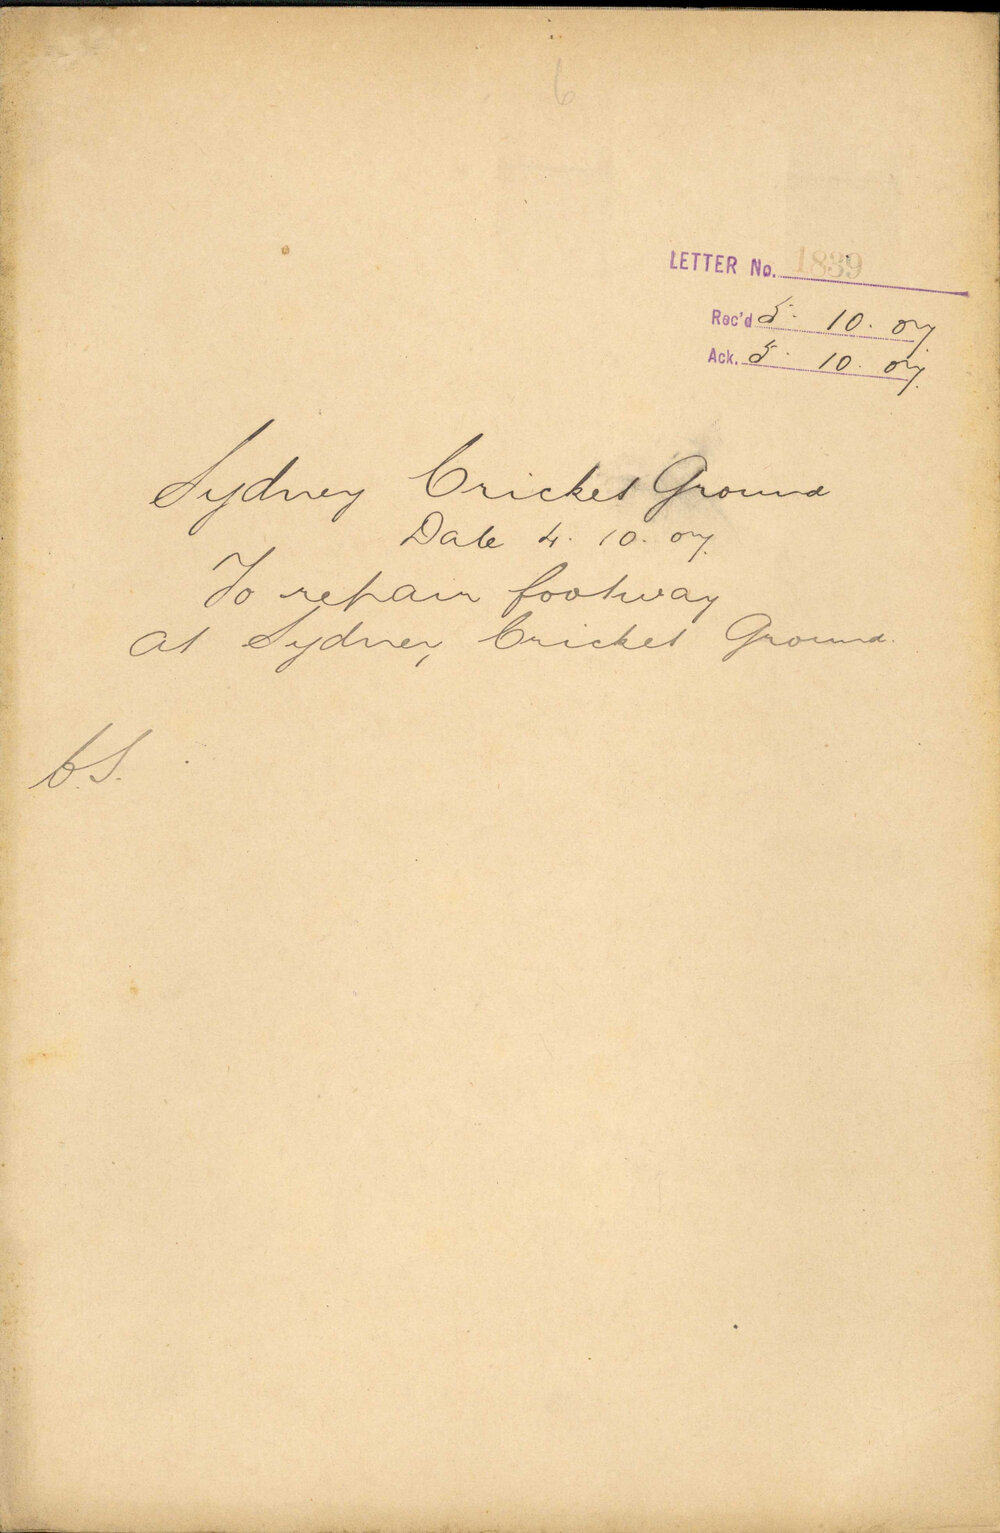 6
LETTER No. 1839
Rec'd 5. 10. 07.
Ack. 5. 10. 07.
Sydney Cricket Ground
Date 4. 10. 07.
To repair footway
at Sydney Cricket Ground.
C.S.